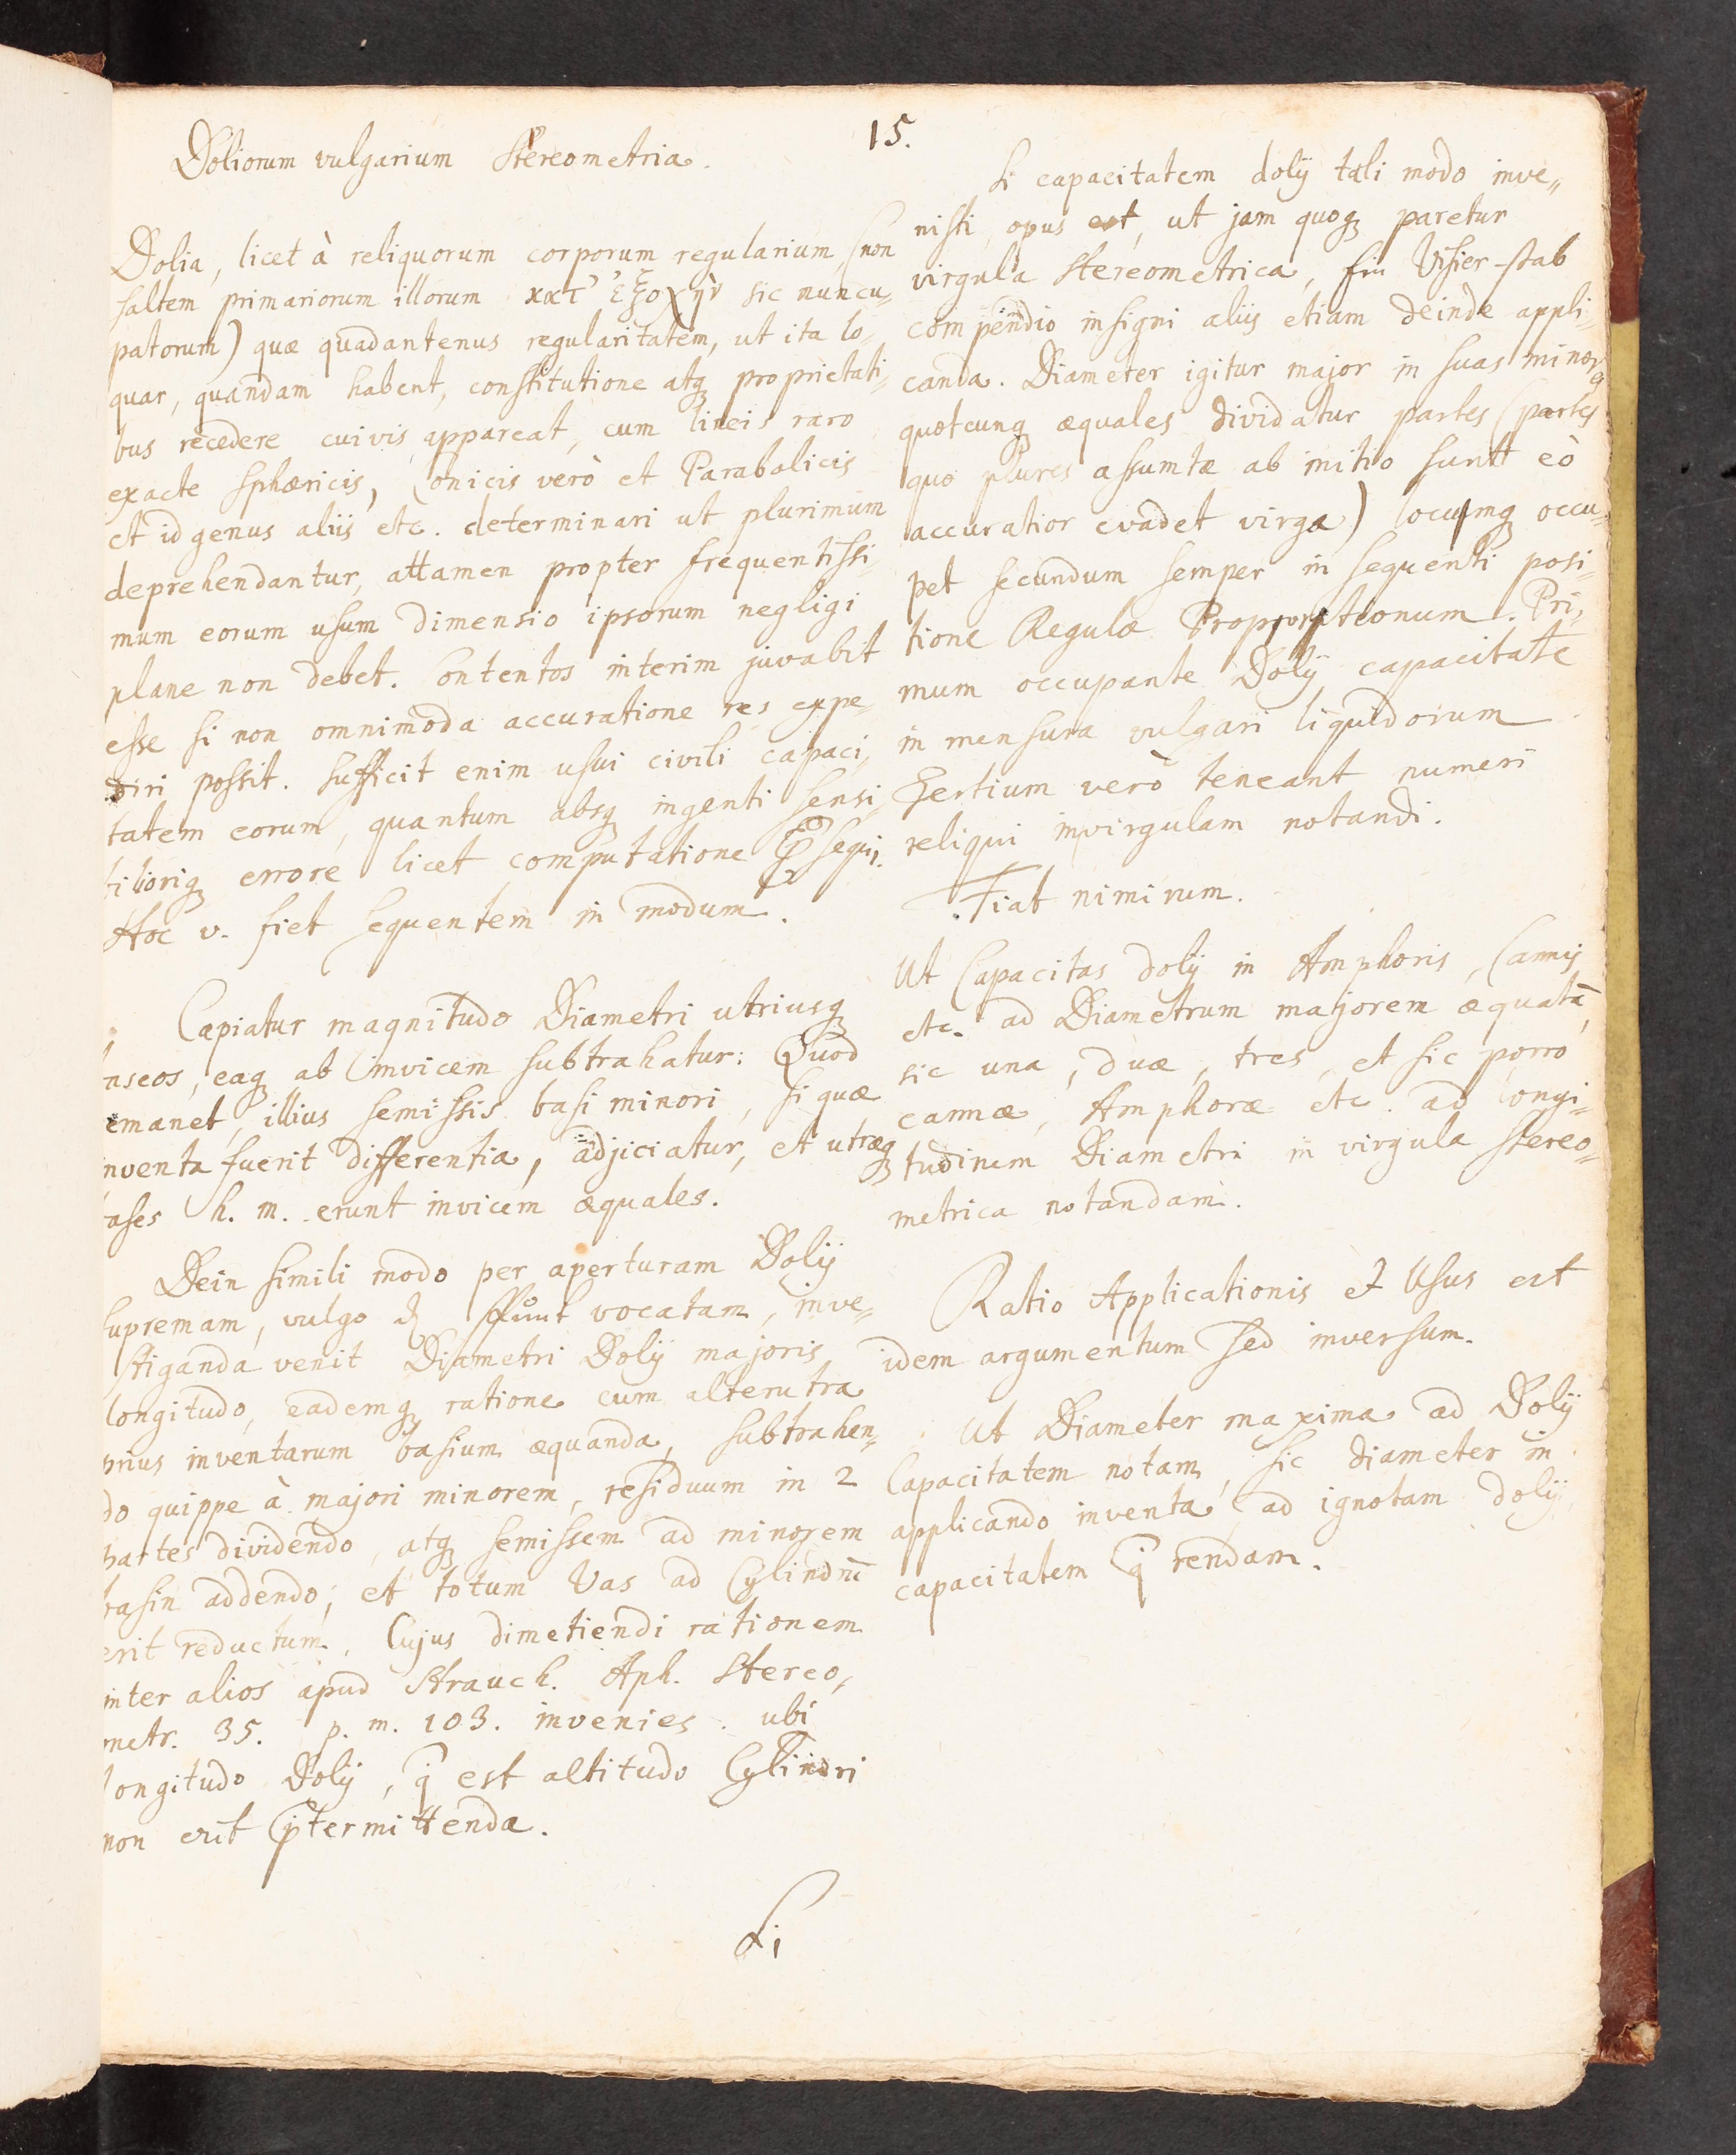 15.
Doliorum vulgarium Stereometria.
Dolia, licet à reliquorum corporum regularium, (non
saltem primariorum illorum κατ' ἐξοχὴν sic nuncu„
patorum) quæ quadantenus regularitatem, ut ita lo„
quar, quandam habent, constitutione atq proprietati„
bus recedere cuivis appareat, cum lineis raro
exacte sphæricis, Conicis verò et Parabolicis
et id genus aliis etc. determinari ut plurimum
deprehendantur, attamen propter frequentissi„
mum eorum usum dimensio ipsorum negligi
plane non debet. Contentos interim juvabit
esse si non omnimoda accuratione res expe„
diri possit. Sufficit enim usui civili capaci„
tatem eorum, quantum absq ingenti sensi„
bilioriq errore licet computatione assequi.
Hoc v. fiet sequentem in modum.
Capiatur magnitudo Diametri utriusq
nseos, eaq ab invicem subtrahatur: Quod
emanet, illius semissis basi minori, si quæ
nventa fuerit differentia, adjiciatur, et utræq
ases h. m. erunt invicem æquales.
Dein simili modo per aperturam Dolij
supremam, vulgo vocatam, inve„
stiganda venit Diametri Dolij majoris
longitudo, eademq ratione cum alterutra
prius inventarum basium æquanda, subtrahen„
do quippe à majori minorem, residuum in 2
partes dividendo, atq semissem ad minorem
basin addendo; et totum Vas ad Cylindrū
erit reductum. Cujus dimetiendi rationem
inter alios apud Strauch. Aph. Stereo„
metr. 35. p. m. 103. invenies. ubi
longitudo Dolij, q est altitudo Cylindri
non erit ptermittenda.
Si
Si capacitatem dolij tali modo inve„
nisti, opus est, ut jam quoq paretur
virgula Stereometrica, Visier-stab
compendio insigni aliis etiam deinde appli„
canda. Diameter igitur major in suas minores
quotcunq æquales dividatur partes (partes
quo plures assumtæ ab initio sunt eò
accuratior evadet virga) locumq occu„
pet secundum semper in sequenti posi„
tione Regulæ Proportionum. Pri„
mum occupante Dolij capacitate
in mensura vulgari liquidorum
Tertium verò teneant numeri
reliqui in virgulam notandi.
Fiat nimirum.
Ut Capacitas dolij in Amphoris, Cannis
etc. ad Diametrum majorem æquatā,
sic una, duæ, tres, et sic porro
cannæ, Amphoræ etc. ad longi„
tudinem Diametri in virgula stereo„
metrica notandam.
Ratio Applicationis et Usus est
idem argumentum sed inversum.
Ut Diameter maxima ad Dolij
Capacitatem notam, sic diameter in
applicando inventa, ad ignotam dolij
capacitatem q rendam.